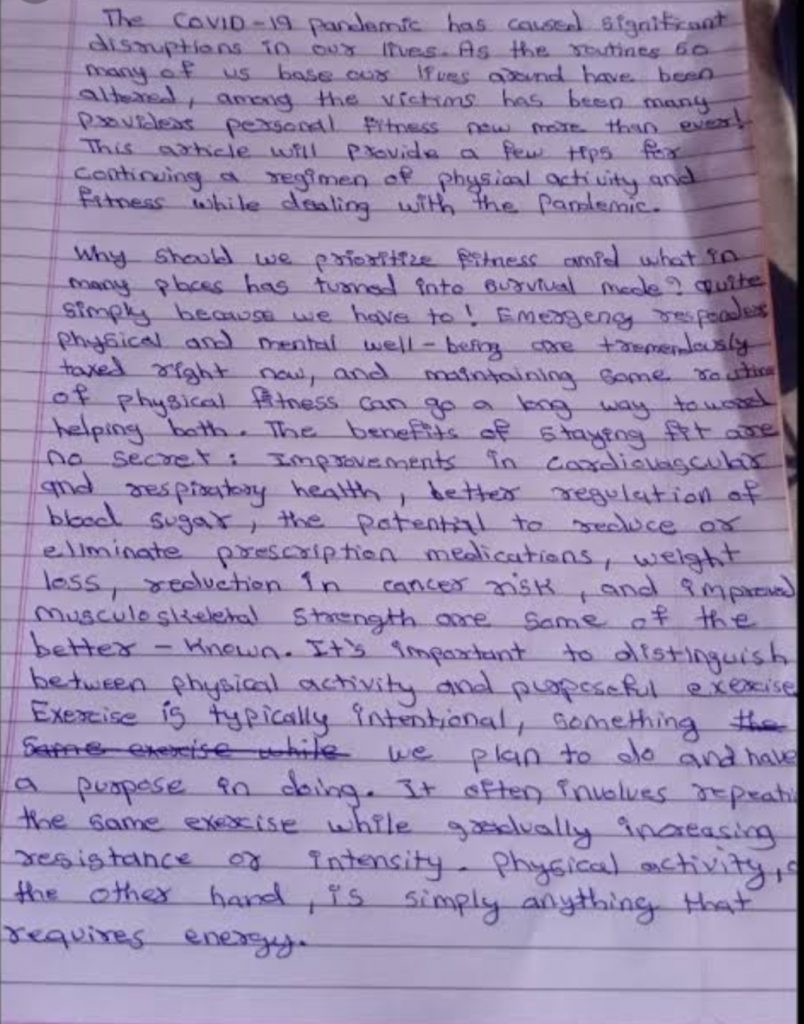 The COVID-19 pandemic has caused significant
disruptions in our lives. As the routines so
many of us base our lives around have been
altered, among the victims has been many
providers personal fitness now more than ever!
This article will provide a few tips for
continuing a regimen of physical activity and
fitness while dealing with the pandemic.
Why should we prioritize fitness amid what in
many places has turned into survival mode? Quite
simply because we have to! Emergency responders
physical and mental well-being are tremendously
taxed right now, and maintaining some routine
of physical fitness can go a long way toward
helping both. The benefits of staying fit are
no secret: Improvements in cardiovascular
and respiratory health, better regulation of
blood sugar, the potential to reduce or
eliminate prescription medications, weight
loss, reduction in cancer risk, and improved
musculoskeletal strength are some of the
better-known. It's important to distinguish
between physical activity and purposeful exercise
Exercise is typically intentional, something the
same exercise while we plan to do and have
a purpose in doing. It often involves repeati
the same exercise while gradually increasing
resistance or intensity. Physical activity,
the other hand, is simply anything that
requires energy.